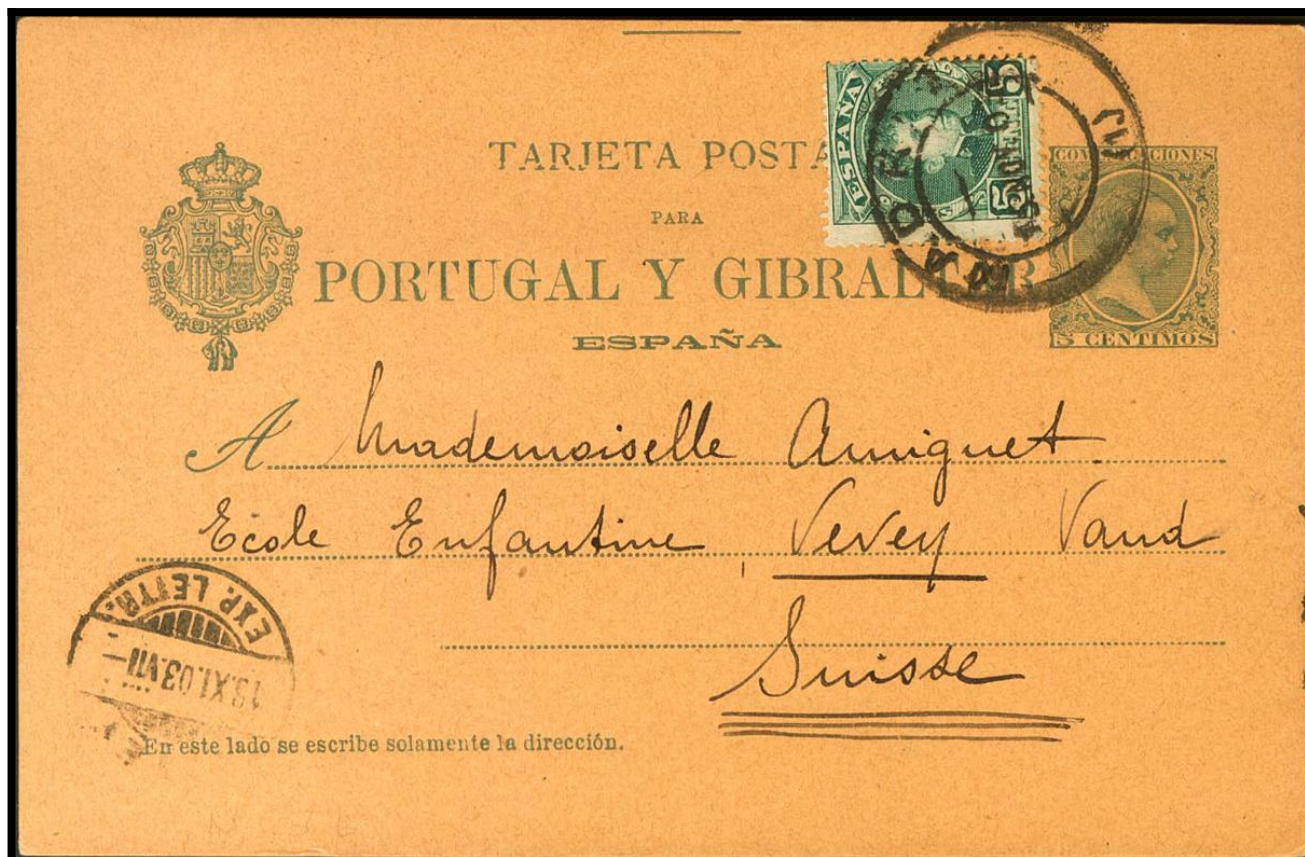 TARJETA POSTA
PARA
PORTUGAL Y GIBRALTAR
ESPAÑA
ESPAÑA
5 5
COMUNICACIONES
5 CENTIMOS
A Mademoiselle Amiguet
Ecole Enfantine Vevey Vaud
Suisse
EXP. LETTR.
13.XI.03.VII
En este lado se escribe solamente la dirección.